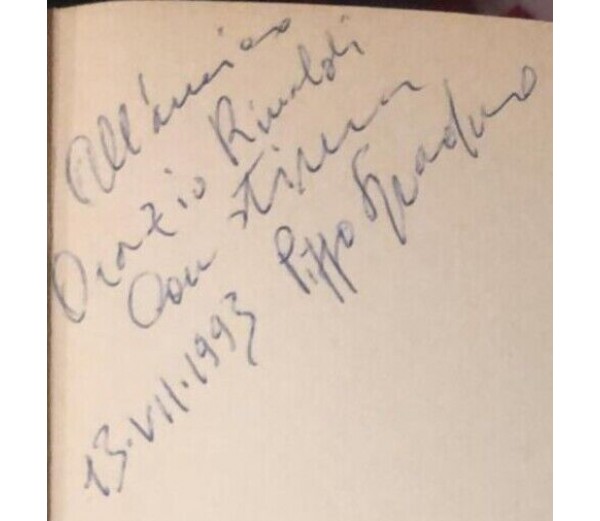 All'amico
Orazio Rinaldi
Con stima
Pippo Spadaro
13.VII.1993